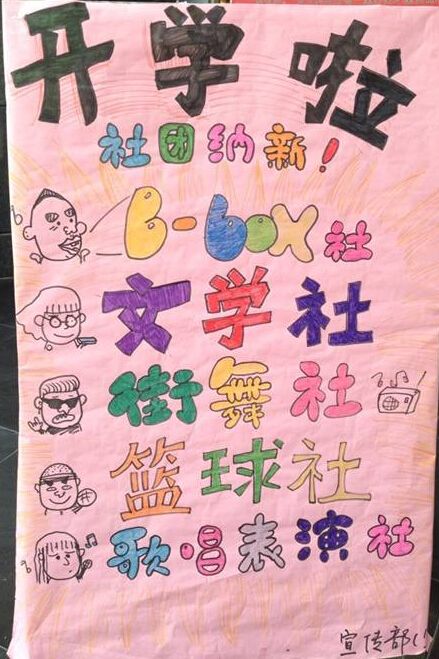 开学啦
社团纳新!
B-box社
文学社
街舞社
篮球社
歌唱表演社
宣传部(!